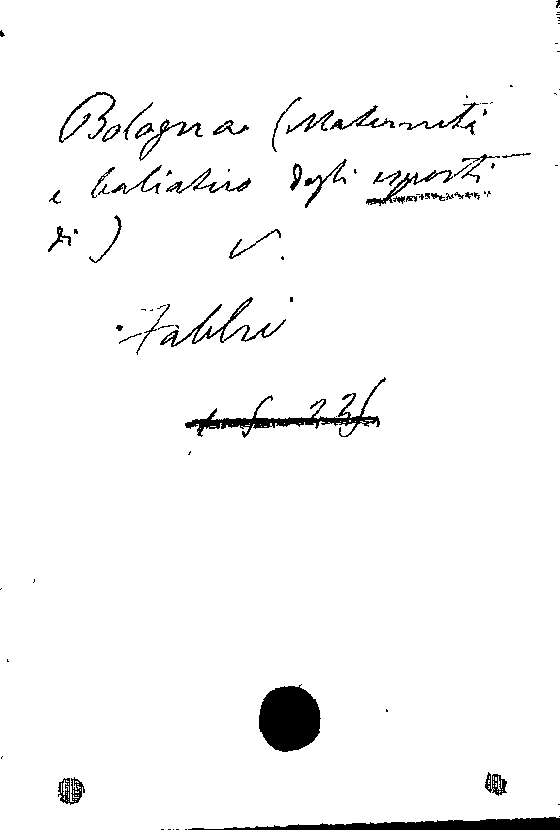 Bologna (Maternità
e baliatico degli esposti
di) V.
Fabbri